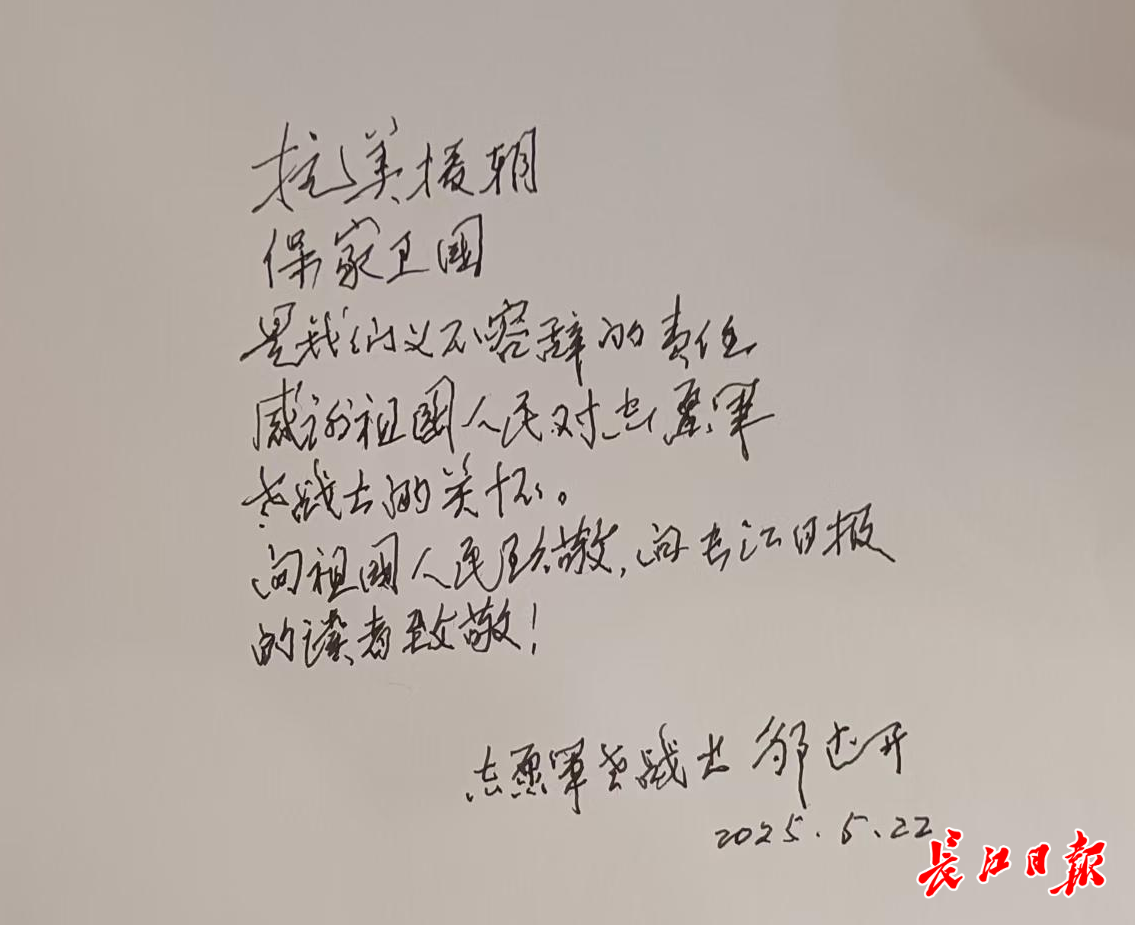 抗美援朝
保家卫國
是我们义不容辞的责任
感谢祖國人民对志愿军
老战士的关怀。
向祖國人民致敬,向长江日报
的读者致敬!
志愿军老战士 邹
2025.5.22
长江日報